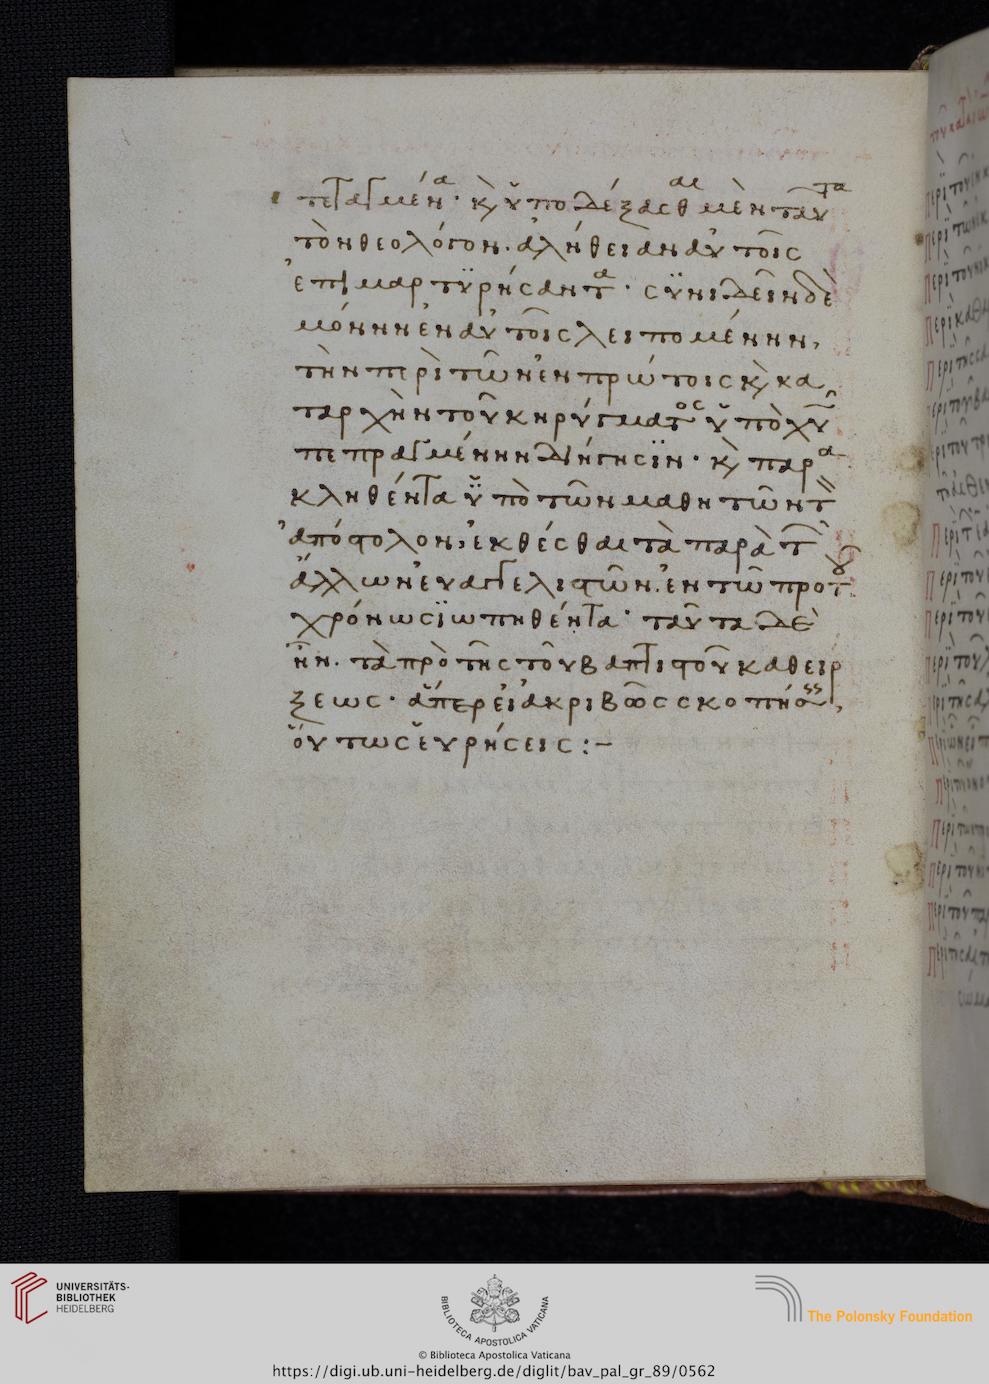 τεταγμένα· κ(αὶ) ὑποδέξασθαι μὲν ταῦτα
τὸν θεολόγον. ἀλήθειαν αὐτοῖς
ἐπιμαρτϋρήσαντα· σϋνιδεῖν δὲ
μόνην ἐν αὐτοῖς λειπομένην,
τὴν περὶ τῶν ἐν πρώτοις κ(αὶ) κα
ταρχὴν τοῦ κηρύγματος ὑπὸ χ̅υ̅
πεπραγμένην διήγησϊν· κ(αὶ) παρα
κληθέντα ὑπὸ τῶν μαθητῶν τὸν
ἀπόστολον, ἐκθέσθαι τὰ παρὰ τῶν
ἄλλων εὐαγγελιστῶν. ἐν τῶ πρὸ τοῦ
χρόνω σϊωπηθέντα· ταῦτα δὲ
ἦν. τὰ πρὸ τῆς τοῦ βαπτιστοῦ καθείρ
ξεως· ἅπερ εἰ ἀκριβῶς σκοπήσας,
οὕτως εὑρήσεις :–
UNIVERSITÄTS-
BIBLIOTHEK
HEIDELBERG
BIBLIOTECA APOSTOLICA VATICANA
The Polonsky Foundation
© Biblioteca Apostolica Vaticana
https://digi.ub.uni-heidelberg.de/diglit/bav_pal_gr_89/0562